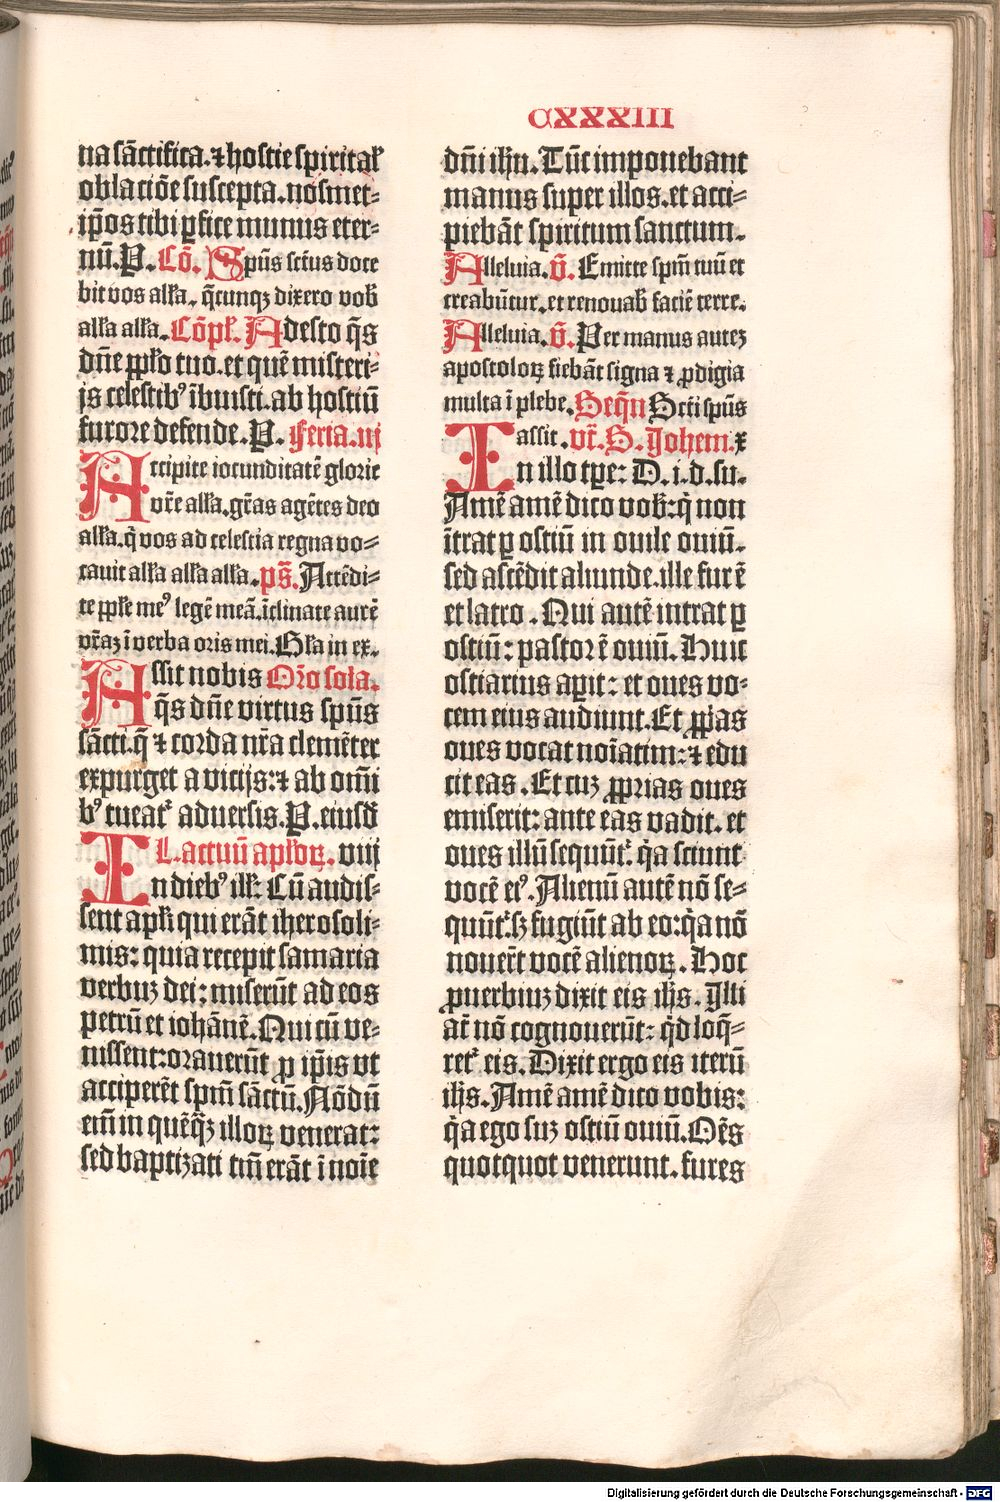 CXXXIII
na sāctifica.⁊ hostie spiritaꝉ
oblatiōe suscepta.nosmet-
ip̄os tibi ꝑfice munus eter-
nū.P. Cō. Sp̄us sct̄us doce
bit vos alꝉa. q̄cunqꝫ dixero vob̄
alꝉa alꝉa. Cōpꝉ. Adesto q̄s
dn̄e ppꝉo tuo.et quē misteri-
js celestibꝰ ībuisti.ab hostiū
furore defende.P. Feria.iij
Accipite iocunditatē glorie
vr̄e alꝉa.gr̄as agētes deo
alꝉa.q̇ vos ad celestia regna vo-
cauit alꝉa alꝉa alꝉa. ps̄. Attēdi-
te ppꝉe meꝰ legē meā.īclinate aurē
vr̄aꝫ ī verba oris mei.Gꝉa in ex.
Assit nobis Or̄o sola.
q̄s dn̄e virtus spūs
sācti.q̄ ⁊ corda nr̄a clemēter
expurget a vicijs:⁊ ab om̄i
bꝰ tueat᷑ aduersis.P.eiusd̄
L.actuū apꝉoꝝ. viij
In diebꝰ ilꝉ: Cū audis-
sent apꝉi qui erāt iherosoli-
mis: quia recepit samaria
verbuꝫ dei: miserūt ad eos
petrū et iohānē.Qui cū ve-
nissent:orauerūt ꝓ ip̄is vt
acciperēt spm̄ sāctū.Nōdū
em̄ in quēq̄ꝫ illoꝝ venerat:
sed baptizati tm̄ erāt ī noīe
dn̄i ih̄u. Tūc imponebant
manus super illos.et acci-
piebāt spiritum sanctum.
Alleluia. v̄. Emitte spm̄ tuū et
creabūtur.et renouab̄ faciē terre.
Alleluia. v̄. Per manus auteꝫ
apostoloꝝ fiebāt signa ⁊ ꝓdigia
multa ī plebe. Seqn̄ Scti spūs
assit. vt̄. S. Johem. x
In illo tꝑe: D. i. d. su.
Amē amē dico vob̄:q̇ non
ītrat ꝑ ostiū in ouile ouiū.
sed ascēdit aliunde.ille fur ē
et latro. Qui autē intrat ꝑ
ostiū: pastor ē ouiū. Huic
ostiarius aꝑit: et oues vo-
cem eius audiunt.Et ꝓp̄as
oues vocat noīatim:⁊ edu
cit eas. Et cuꝫ ꝓprias oues
emiserit: ante eas vadit. et
oues illū sequūt᷑. q̇a sciunt
vocē eiꝰ. Alienū autē nō se-
quūt᷑.sꝫ fugiūt ab eo:q̇a nō
nouer̄t vocē alienoꝝ. Hoc
ꝓuerbiuꝫ dixit eis ih̄s. Illi
at̄ nō cognouerūt: qd̄ loq̄-
ret᷑ eis. Dixit ergo eis iterū
ih̄s. Amē amē dico vobis:
q̇a ego suꝫ ostiū ouiū.Om̄s
quotquot venerunt. fures
Digitalisierung gefördert durch die Deutsche Forschungsgemeinschaft - DFG